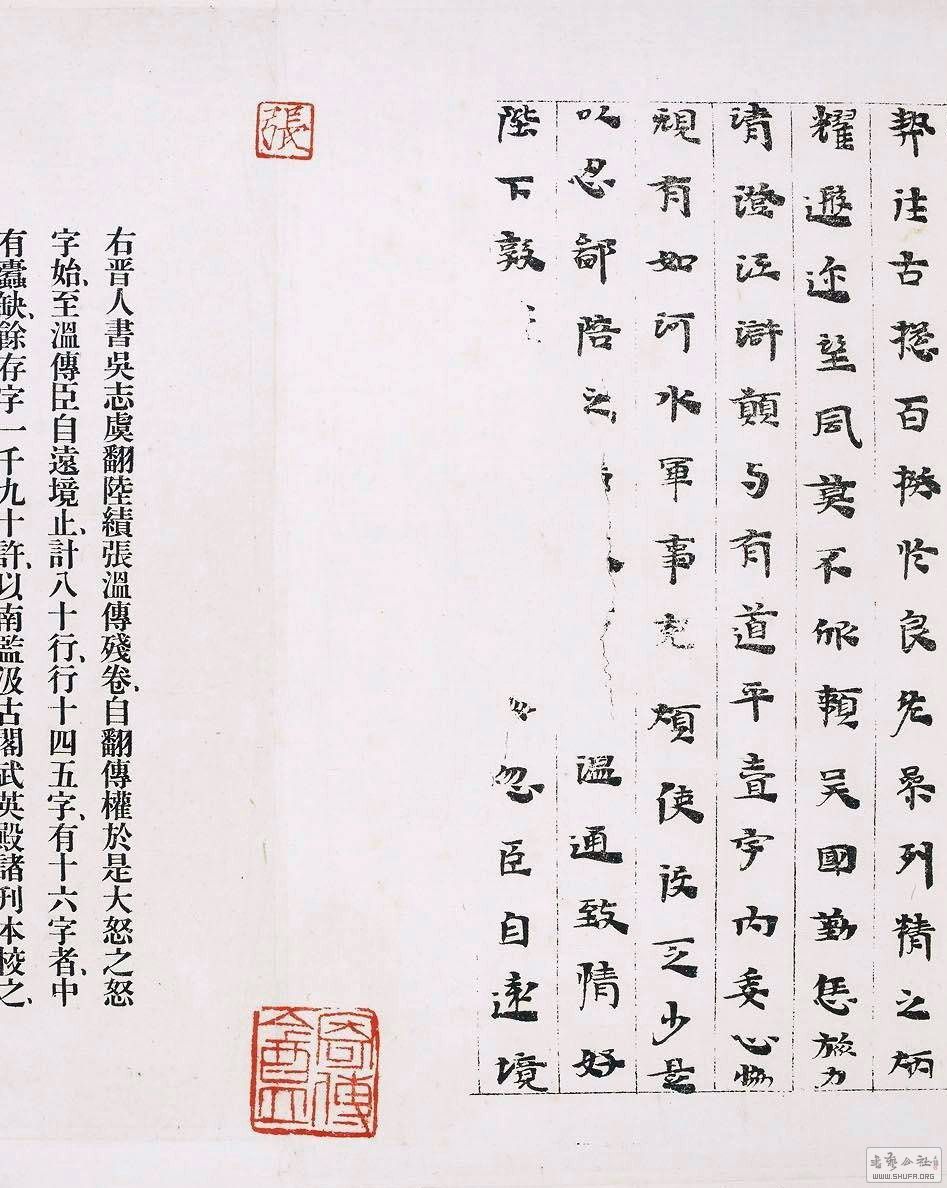 邦往古揔百揆於良叅列精之炳
耀遐迩望風莫不欣賴吳國勤恁旅力
清澄江滸願与有道平壹宇內委心協
規有如河水軍事充煩使役乏少是
以忍鄙陪之溫通致情好
陛下敦忽臣自遠境
張
右晋人書吳志虞翻陸績張溫傳殘卷、自翻傳權於是大怒之怒
字始、至溫傳臣自遠境止、計八十行、行十四五字、有十六字者、中
有蠹缺、餘存字一千九十許、以南監汲古閣武英殿諸刊本校之、
書藝公社
WWW.SHUFA.ORG